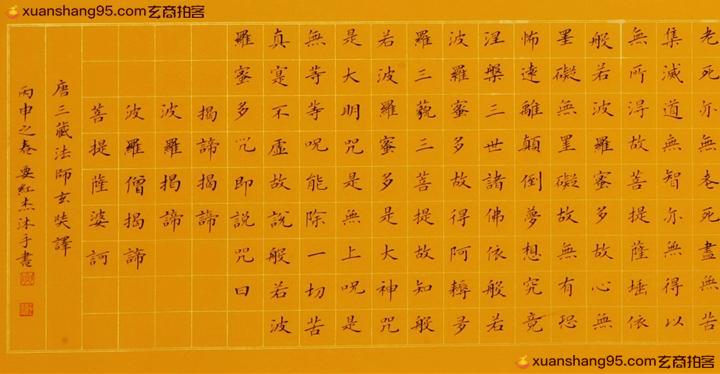 xuanshang95.com玄商拍客
老死亦無老死盡無苦
集滅道無智亦無得以
無所得故菩提薩埵依
般若波羅蜜多故心無
罣礙無罣礙故無有恐
怖遠離顛倒夢想究竟
涅槃三世諸佛依般若
波羅蜜多故得阿耨多
羅三藐三菩提故知般
若波羅蜜多是大神咒
是大明咒是無上呪是
無等等呪能除一切苦
真寔不虛故說般若波
羅蜜多咒即說咒曰
揭諦揭諦
波羅揭諦
波羅僧揭諦
菩提薩婆訶
唐三藏法師玄奘譯
丙申之春紅杰沐手書
xuanshang95.com玄商拍客